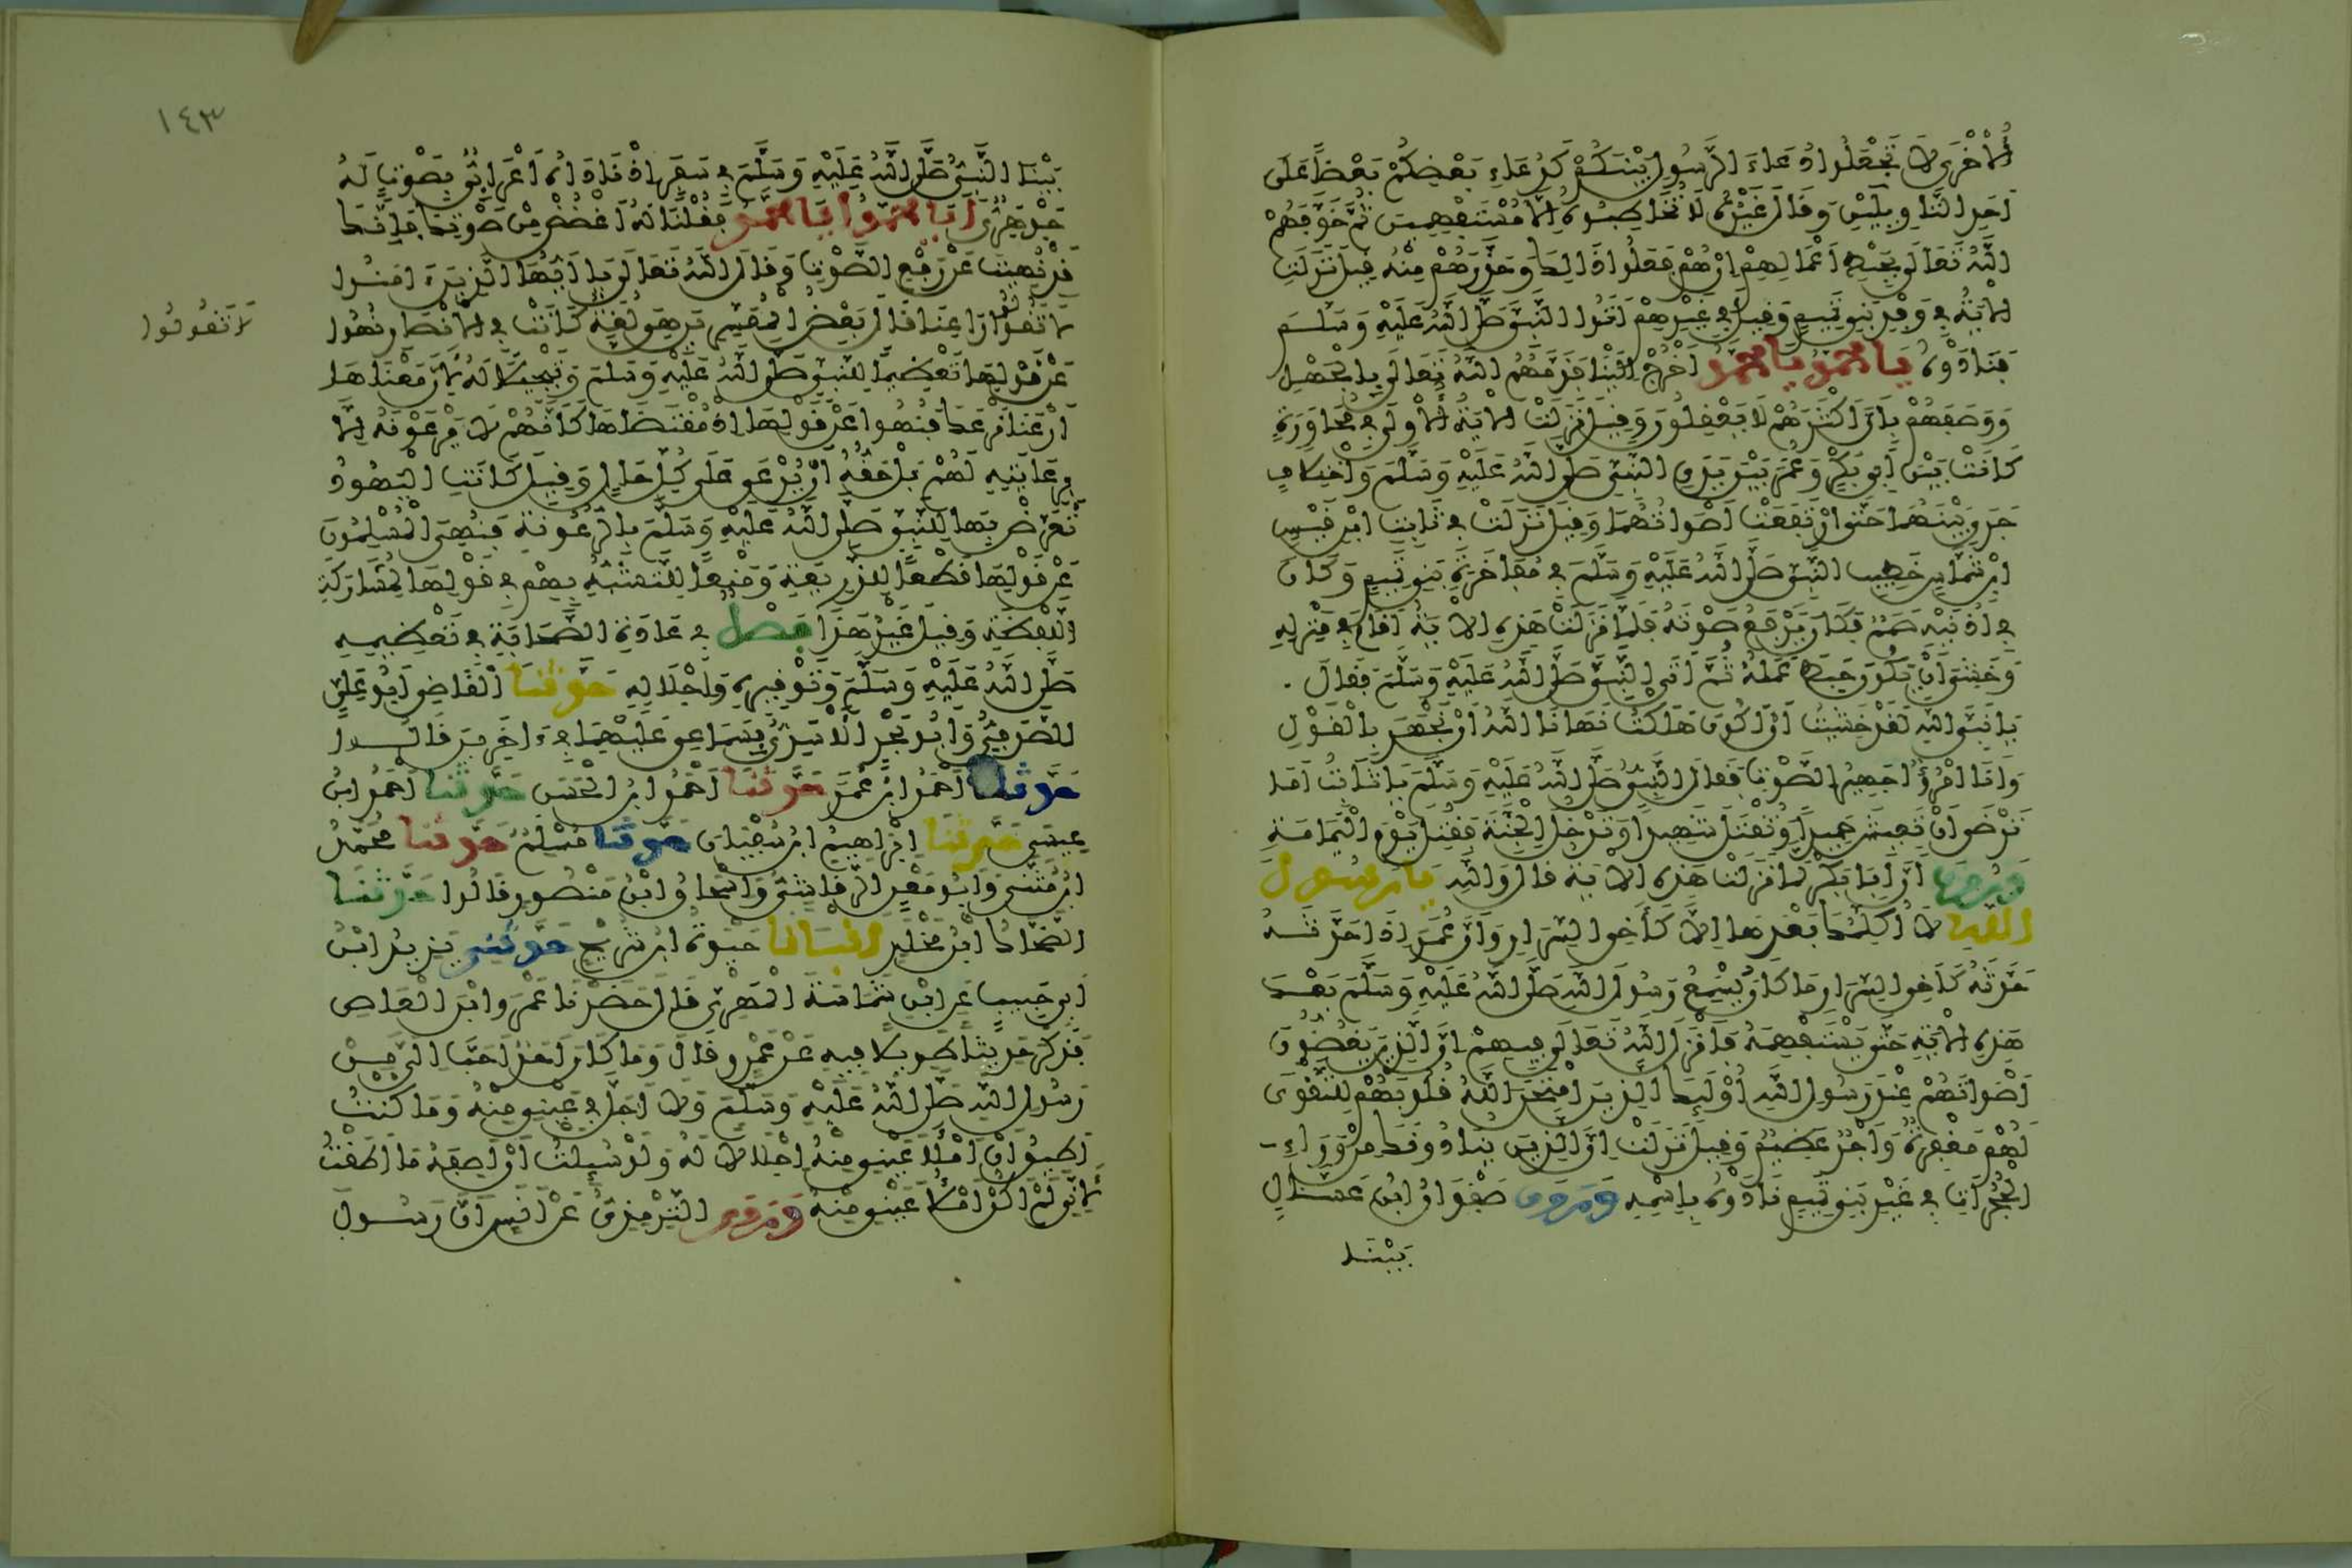 الْأُخْرَى لَا تَجْعَلُوا دُعَاءَ الرَّسُولِ بَيْنَكُمْ كَدُعَاءِ بَعْضِكُمْ بَعْضًا عَلَى
أَحَدِ التَّأْوِيلَيْنِ وَقَالَ غَيْرُهُ لَا تُخَاطِبُوهُ إِلَّا مُسْتَفْهِمِينَ ثُمَّ خَوَّفَهُمُ
اللَّهُ تَعَالَى بِحَبْطِ أَعْمَالِهِمْ إِنْ هُمْ فَعَلُوا ذَالِكَ وَحَذَّرَهُمْ مِنْهُ قِيلَ نَزَلَتِ
الْآيَةُ فِي وَفْدِ بَنِي تَمِيمٍ وَقِيلَ فِي غَيْرِهِمْ أَتَوُا النَّبِيَّ صَلَّى اللَّهُ عَلَيْهِ وَسَلَّمَ
فَنَادَوْهُ يَا مُحَمَّدُ يَا مُحَمَّدُ اخْرُجْ إِلَيْنَا فَذَمَّهُمُ اللَّهُ تَعَالَى بِالْجَهْلِ
وَوَصَفَهُمْ بِأَنَّ أَكْثَرَهُمْ لَا يَعْقِلُونَ وَقِيلَ نَزَلَتِ الْآيَةُ الْأُولَى فِي مُحَاوَرَةٍ
كَانَتْ بَيْنَ أَبِي بَكْرٍ وَعُمَرَ بَيْنَ يَدَيِ النَّبِيِّ صَلَّى اللَّهُ عَلَيْهِ وَسَلَّمَ وَاخْتِلَافٍ
جَرَى بَيْنَهُمَا حَتَّى ارْتَفَعَتْ أَصْوَاتُهُمَا وَقِيلَ نَزَلَتْ فِي ثَابِتِ ابْنِ قَيْسِ
ابْنِ شَمَّاسٍ خَطِيبِ النَّبِيِّ صَلَّى اللَّهُ عَلَيْهِ وَسَلَّمَ فِي مُفَاخَرَةِ بَنِي تَمِيمٍ وَكَانَ
فِي أُذُنَيْهِ صَمَمٌ فَكَانَ يَرْفَعُ صَوْتَهُ فَلَمَّا نَزَلَتْ هَذِهِ الْآيَةُ أَقَامَ فِي مَنْزِلِهِ
وَخَشِيَ أَنْ يَكُونَ حَبِطَ عَمَلُهُ ثُمَّ أَتَى النَّبِيَّ صَلَّى اللَّهُ عَلَيْهِ وَسَلَّمَ فَقَالَ
يَا نَبِيَّ اللَّهِ لَقَدْ خَشِيتُ أَنْ أَكُونَ هَلَكْتُ نَهَانَا اللَّهُ أَنْ نَجْهَرَ بِالْقَوْلِ
وَأَنَا امْرُؤٌ جَهِيرُ الصَّوْتِ فَقَالَ النَّبِيُّ صَلَّى اللَّهُ عَلَيْهِ وَسَلَّمَ يَا ثَابِتُ أَمَا
تَرْضَى أَنْ تَعِيشَ حَمِيدًا وَتُقْتَلَ شَهِيدًا وَتَدْخُلَ الْجَنَّةَ فَقُتِلَ يَوْمَ الْيَمَامَةِ
وَرُوِيَ أَنَّ أَبَا بَكْرٍ لَمَّا نَزَلَتْ هَذِهِ الْآيَةُ قَالَ وَاللَّهِ يَا رَسُولَ
اللَّهِ لَا أُكَلِّمُكَ بَعْدَهَا إِلَّا كَأَخِي السِّرَارِ وَأَنَّ عُمَرَ إِذَا حَدَّثَهُ
حَدَّثَهُ كَأَخِي السِّرَارِ مَا كَانَ يُسْمِعُ رَسُولَ اللَّهِ صَلَّى اللَّهُ عَلَيْهِ وَسَلَّمَ بَعْدَ
هَذِهِ الْآيَةِ حَتَّى يَسْتَفْهِمَهُ فَأَنْزَلَ اللَّهُ تَعَالَى فِيهِمْ إِنَّ الَّذِينَ يَغُضُّونَ
أَصْوَاتَهُمْ عِنْدَ رَسُولِ اللَّهِ أُوْلَئِكَ الَّذِينَ امْتَحَنَ اللَّهُ قُلُوبَهُمْ لِلتَّقْوَى
لَهُمْ مَغْفِرَةٌ وَأَجْرٌ عَظِيمٌ وَقِيلَ نَزَلَتْ إِنَّ الَّذِينَ يُنَادُونَكَ مِنْ وَرَاءِ
الْحُجُرَاتِ فِي غَيْرِ بَنِي تَمِيمٍ نَادَوْهُ بِاسْمِهِ وَرَوَى صَفْوَانُ ابْنُ عَسَّالٍ
بَيْنَا
١٤٣
بَيْنَا النَّبِيُّ صَلَّى اللَّهُ عَلَيْهِ وَسَلَّمَ فِي سَفَرٍ إِذْ نَادَاهُ أَعْرَابِيٌّ بِصَوْتٍ لَهُ
جَهْوَرِيٍّ أَيَا مُحَمَّدُ أَيَا مُحَمَّدُ فَقُلْنَا لَهُ اغْضُضْ مِنْ صَوْتِكَ فَإِنَّكَ
قَدْ نُهِيتَ عَنْ رَفْعِ الصَّوْتِ وَقَالَ اللَّهُ تَعَالَى يَا أَيُّهَا الَّذِينَ ءَامَنُوا
لَا تَقُولُوا رَاعِنَا قَالَ بَعْضُ الْمُفَسِّرِينَ هِيَ لُغَةٌ كَانَتْ فِي الْأَنْصَارِ نُهُوا
لَا تَقُولُوا
عَنْ قَوْلِهَا تَعْظِيمًا لِلنَّبِيِّ صَلَّى اللَّهُ عَلَيْهِ وَسَلَّمَ وَتَبْجِيلًا لَهُ لِأَنَّ مَعْنَاهَا
ارْعَنَا نَرْعَكَ فَنُهُوا عَنْ قَوْلِهَا إِذْ مُقْتَضَاهَا كَأَنَّهُمْ لَا يَرْعَوْنَهُ إِلَّا
بِرِعَايَتِهِ لَهُمْ بَلْ حَقُّهُ أَنْ يُرْعَى عَلَى كُلِّ حَالٍ وَقِيلَ كَانَتِ الْيَهُودُ
تُعَرِّضُ بِهَا لِلنَّبِيِّ صَلَّى اللَّهُ عَلَيْهِ وَسَلَّمَ بِالرُّعُونَةِ فَنُهِيَ الْمُسْلِمُونَ
عَنْ قَوْلِهَا قَطْعًا لِلذَّرِيعَةِ وَمَنْعًا لِلتَّشَبُّهِ بِهِمْ فِي قَوْلِهَا لِمُشَارَكَةِ
اللَّفْظَةِ وَقِيلَ غَيْرُ هَذَا فَصْلٌ فِي عَادَةِ الصَّحَابَةِ فِي تَعْظِيمِهِ
صَلَّى اللَّهُ عَلَيْهِ وَسَلَّمَ وَتَوْقِيرِهِ وَإِجْلَالِهِ حَدَّثَنَا الْقَاضِي أَبُو عَلِيٍّ
الصَّدَفِيُّ وَأَبُو بَحْرٍ الْأَسَدِيُّ بِسَمَاعِي عَلَيْهِمَا فِي ءَاخَرِينَ قَالُوا
حَدَّثَنَا أَحْمَدُ ابْنُ عُمَرَ حَدَّثَنَا أَحْمَدُ ابْنُ الْحَسَنِ حَدَّثَنَا أَحْمَدُ ابْنُ
عِيسَى حَدَّثَنَا إِبْرَاهِيمُ ابْنُ سُفْيَانَ حَدَّثَنَا مُسْلِمٌ حَدَّثَنَا مُحَمَّدُ
ابْنُ مُثَنَّى وَأَبُو مَعْنٍ الرَّقَاشِيُّ وَإِسْحَاقُ ابْنُ مَنْصُورٍ قَالُوا حَدَّثَنَا
الضَّحَّاكُ ابْنُ مَخْلَدٍ أَنْبَأَنَا حَيْوَةُ ابْنُ شُرَيْحٍ حَدَّثَنِي يَزِيدُ ابْنُ
أَبِي حَبِيبٍ عَنِ ابْنِ شَمَاسَةَ الْمَهْرِيِّ قَالَ حَضَرْنَا عَمْرَو ابْنَ الْعَاصِ
فَذَكَرَ حَدِيثًا طَوِيلًا فِيهِ عَنْ عَمْرٍو قَالَ وَمَا كَانَ أَحَدٌ أَحَبَّ إِلَيَّ مِنْ
رَسُولِ اللَّهِ صَلَّى اللَّهُ عَلَيْهِ وَسَلَّمَ وَلَا أَجَلَّ فِي عَيْنِي مِنْهُ وَمَا كُنْتُ
أُطِيقُ أَنْ أَمْلَأَ عَيْنِي مِنْهُ إِجْلَالًا لَهُ وَلَوْ سُئِلْتُ أَنْ أَصِفَهُ مَا أَطَقْتُ
لِأَنِّي لَمْ أَكُنْ أَمْلَأُ عَيْنِي مِنْهُ وَرَوَى التِّرْمِذِيُّ عَنْ أَنَسٍ أَنَّ رَسُولَ